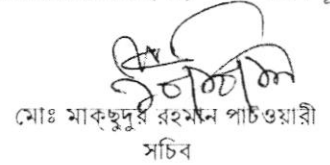 মোঃ মাকছুদুর রহমান পাটওয়ারী
সচিব